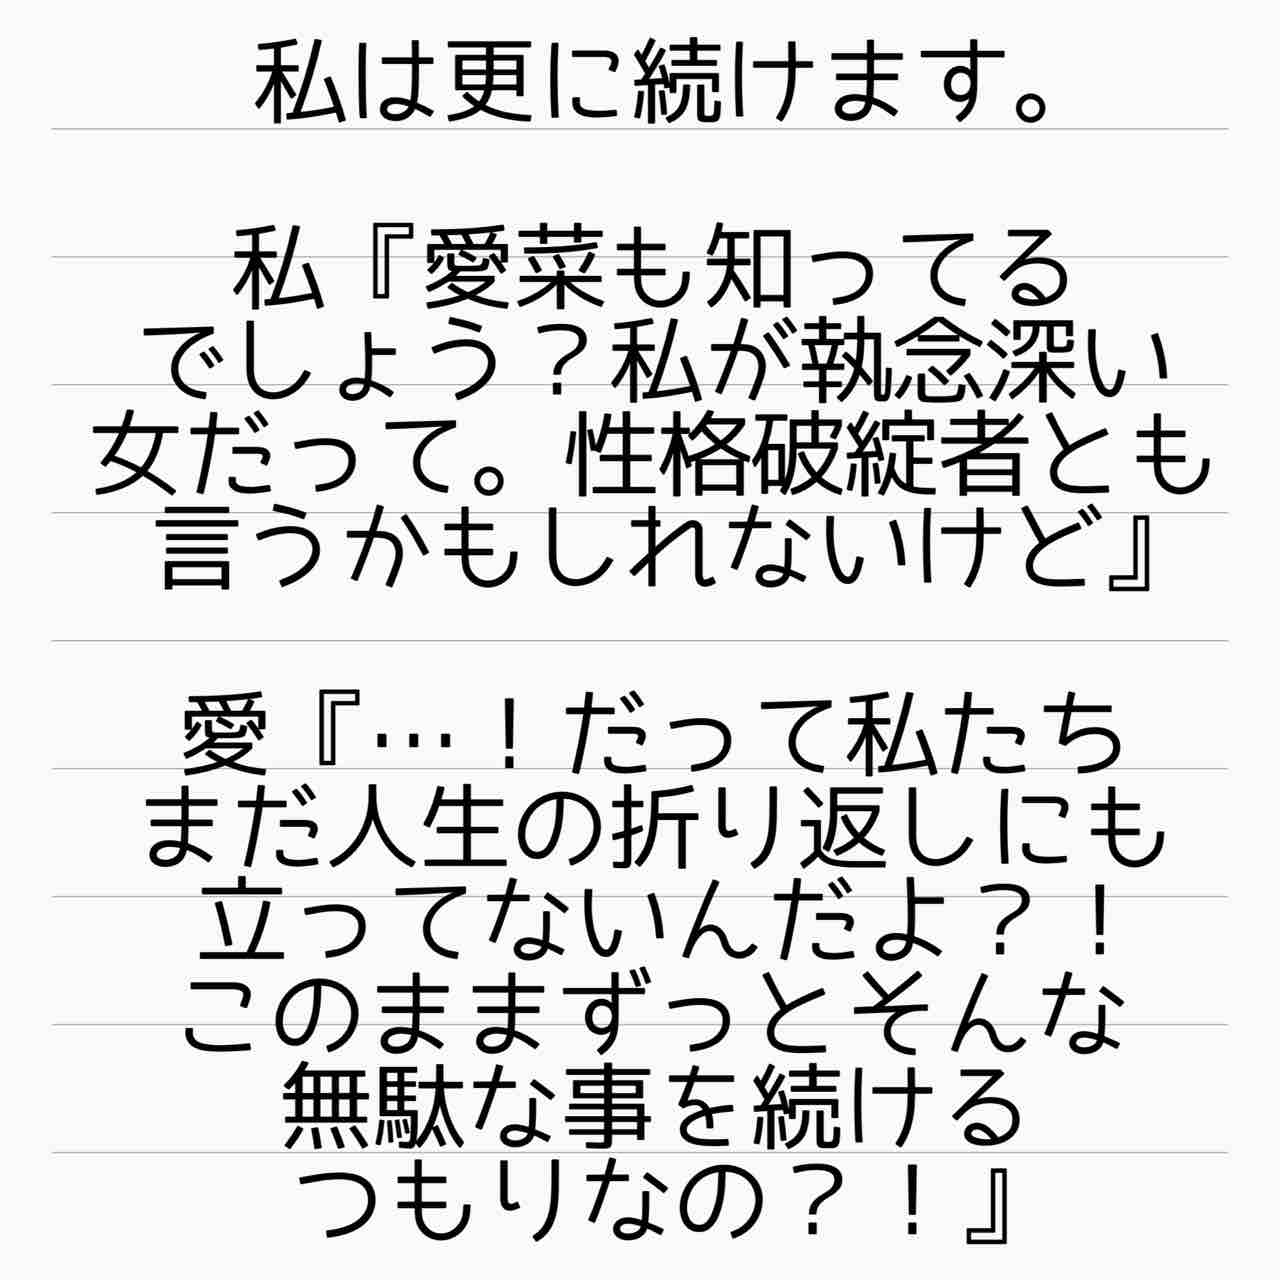 私は更に続けます。
私『愛菜も知ってる
でしょう？私が執念深い
女だって。性格破綻者とも
言うかもしれないけど』
愛『…！だって私たち
まだ人生の折り返しにも
立ってないんだよ？！
このままずっとそんな
無駄な事を続ける
つもりなの？！』